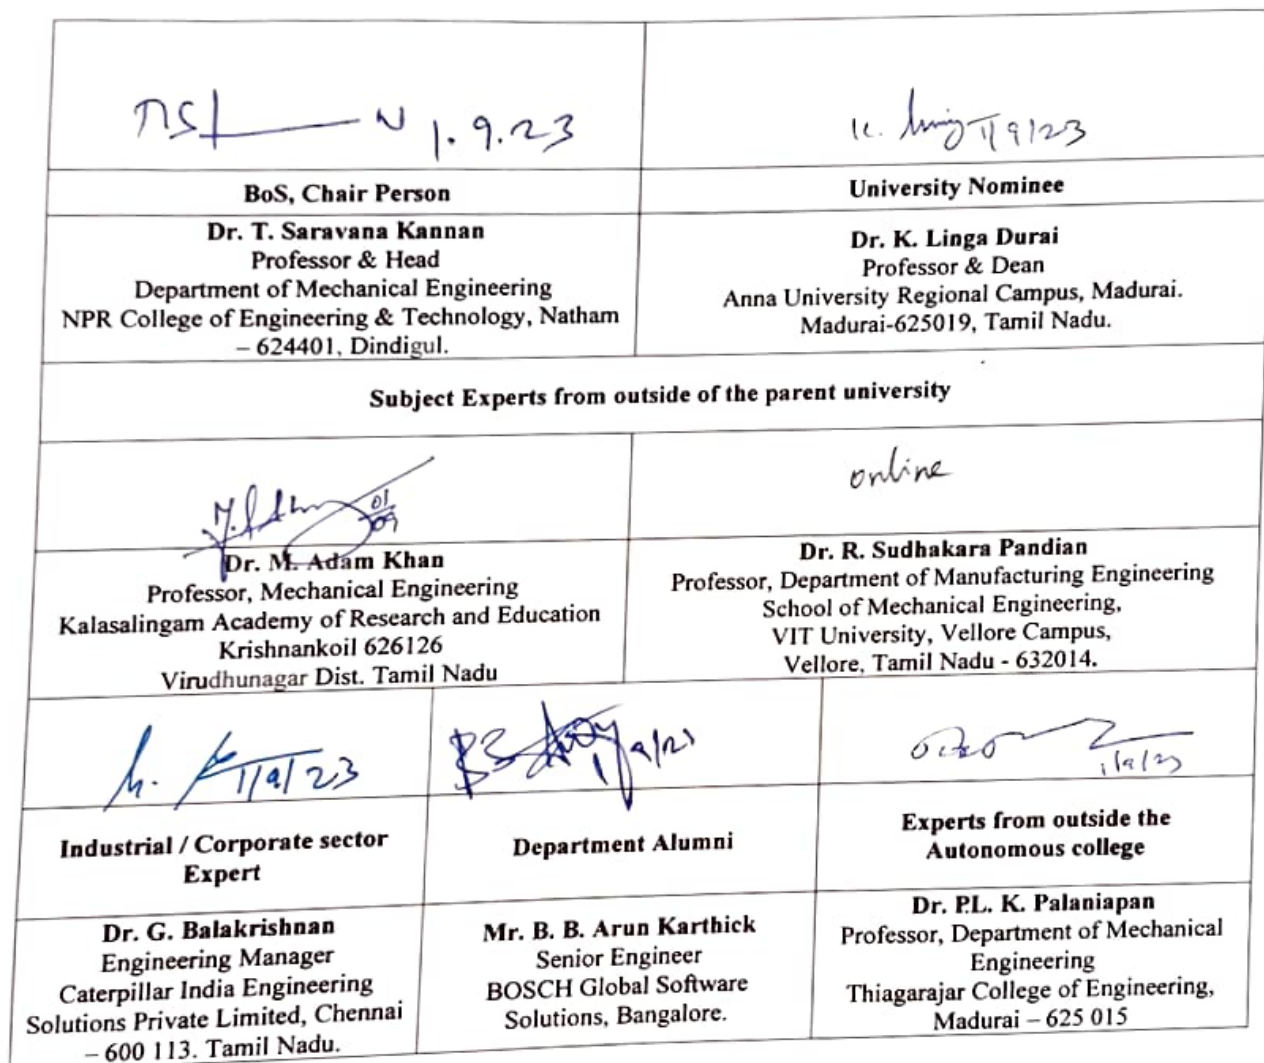 1.9.23
K. 1/9/23
BoS, Chair Person
University Nominee
Dr. T. Saravana Kannan
Professor & Head
Department of Mechanical Engineering
NPR College of Engineering & Technology, Natham
– 624401, Dindigul.
Dr. K. Linga Durai
Professor & Dean
Anna University Regional Campus, Madurai.
Madurai-625019, Tamil Nadu.
Subject Experts from outside of the parent university
01/09
online
Dr. M. Adam Khan
Professor, Mechanical Engineering
Kalasalingam Academy of Research and Education
Krishnankoil 626126
Virudhunagar Dist. Tamil Nadu
Dr. R. Sudhakara Pandian
Professor, Department of Manufacturing Engineering
School of Mechanical Engineering,
VIT University, Vellore Campus,
Vellore, Tamil Nadu - 632014.
1/9/23
1/9/23
1/9/23
Industrial / Corporate sector
Expert
Department Alumni
Experts from outside the
Autonomous college
Dr. G. Balakrishnan
Engineering Manager
Caterpillar India Engineering
Solutions Private Limited, Chennai
– 600 113. Tamil Nadu.
Mr. B. B. Arun Karthick
Senior Engineer
BOSCH Global Software
Solutions, Bangalore.
Dr. PL. K. Palaniapan
Professor, Department of Mechanical
Engineering
Thiagarajar College of Engineering,
Madurai – 625 015